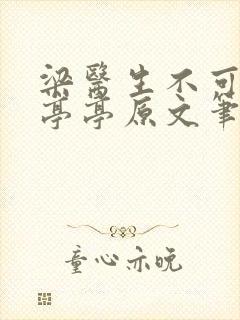 梁醫生不可
亭亭原文筆
童心亦晚